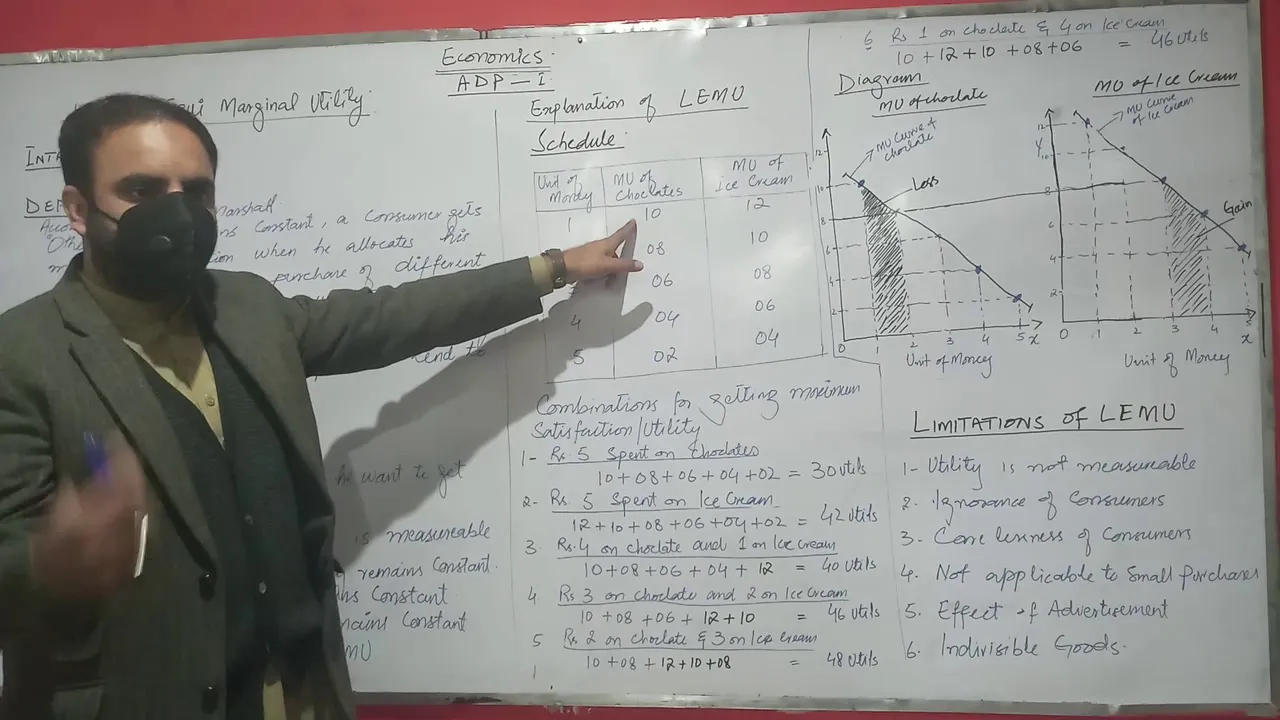 Economics
ADP - I
Equi Marginal Utility
Marshall
Constant, a Consumer gets
when he allocates his
purchase of different
tend to
he want to get
is measureable
remains Constant.
Constant
mains Constant
MU
Explanation of LEMU
Schedule:
Unit of Money MU of Choclates MU of ice Cream
1 10 12
08 10
06 08
4 04 06
5 02 04
Combinations for getting maximum
Satisfaction/Utility
1- Rs. 5 Spent on Choclates
10+08+06+04+02 = 30 Utils
2- Rs. 5 Spent on Ice Cream
12+10+08+06+04+02 = 42 Utils
3. Rs. 4 on choclate and 1 on Ice cream
10+08+06+04+12 = 40 Utils
4 Rs 3 on choclate and 2 on Ice Cream
10+08+06+12+10 = 46 Utils
5 Rs 2 on choclate & 3 on Ice cream
10+08+12+10+08 = 48 Utils
6 Rs 1 on choclate & 4 on Ice Cream
10+12+10+08+06 = 46 Utils
Diagram
MU of choclate
MU Curve of
choclate
Loss
12
10
8
6
4
2
0 1 2 3 4 5 x
Unit of Money
MU of Ice Cream
MU Curve
of Ice cream
Gain
12
Y
10
8
6
4
2
0 1 2 3 4 5
x
Unit of Money
LIMITATIONS OF LEMU
1- Utility is not measureable
2. Ignorance of Consumers
3. Care lessness of Consumers
4. Not applicable to Small Purchases
5. Effect of Advertisement
6. Indivisible Goods.